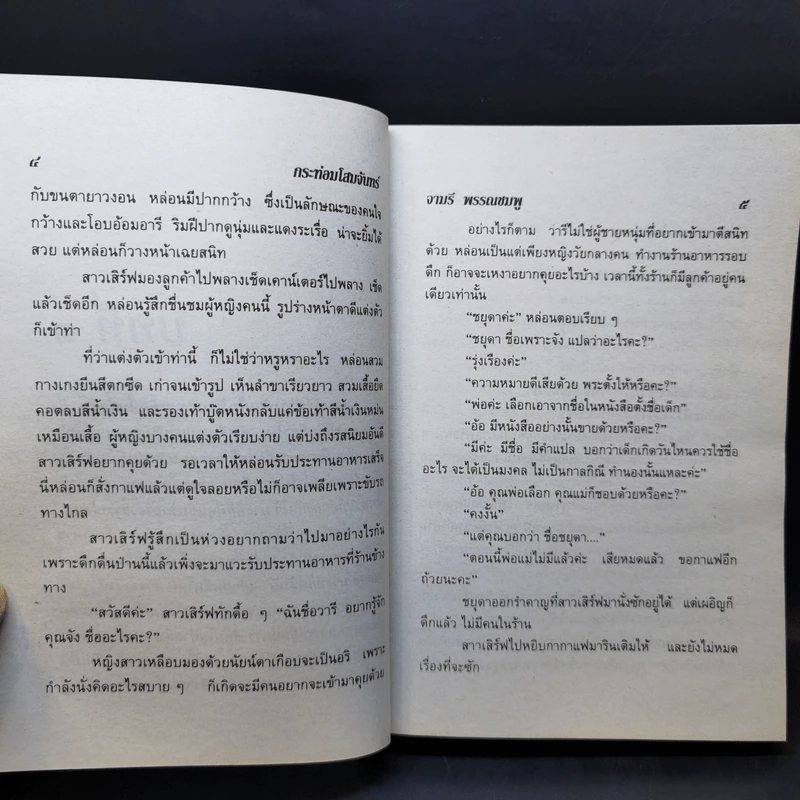 ๔
กระท่อมโสมจันทร์
กับขนตายาวงอน หล่อนมีปากกว้าง ซึ่งเป็นลักษณะของคนใจ
กว้างและโอบอ้อมอารี ริมฝีปากดูนุ่มและแดงระเรื่อ น่าจะยิ้มได้
สวย แต่หล่อนก็วางหน้าเฉยสนิท
สาวเสิร์ฟมองลูกค้าไปพลางเช็ดเคาน์เตอร์ไปพลาง เช็ด
แล้วเช็ดอีก หล่อนรู้สึกชื่นชมผู้หญิงคนนี้ รูปร่างหน้าตาดีแต่งตัว
ก็เข้าท่า
ที่ว่าแต่งตัวเข้าท่านี้ ก็ไม่ใช่ว่าหรูหราอะไร หล่อนสวม
กางเกงยีนสีตกซีด เก่าจนเข้ารูป เห็นลำขาเรียวยาว สวมเสื้อยืด
คอตลบสีน้ำเงิน และรองเท้าบู๊ตหนังกลับแค่ข้อเท้าสีน้ำเงินหม่น
เหมือนเสื้อ ผู้หญิงบางคนแต่งตัวเรียบง่าย แต่บ่งถึงรสนิยมอันดี
สาวเสิร์ฟอยากคุยด้วย รอเวลาให้หล่อนรับประทานอาหารเสร็จ
นี่หล่อนก็สั่งกาแฟแล้วแต่ดูใจลอยหรือไม่ก็อาจเพลียเพราะขับรถ
ทางไกล
สาวเสิร์ฟรู้สึกเป็นห่วงอยากถามว่าไปมาอย่างไรกัน
เพราะดึกดื่นป่านนี้แล้วเพิ่งจะมาแวะรับประทานอาหารที่ร้านข้าง
ทาง
“สวัสดีค่ะ” สาวเสิร์ฟทักดื้อ ๆ “ฉันชื่อวารี อยากรู้จัก
คุณจัง ชื่ออะไรคะ?”
หญิงสาวเหลือบมองด้วยนัยน์ตาเกือบจะเป็นอริ เพราะ
กำลังนั่งคิดอะไรสบาย ๆ ก็เกิดจะมีคนอยากจะเข้ามาคุยด้วย
จามรี พรรณชมพู
๕
อย่างไรก็ตาม วารีไม่ใช่ผู้ชายหนุ่มที่อยากเข้ามาตีสนิท
ด้วย หล่อนเป็นแต่เพียงหญิงวัยกลางคน ทำงานร้านอาหารรอบ
ดึก ก็อาจจะเหงาอยากคุยอะไรบ้าง เวลานี้ทั้งร้านก็มีลูกค้าอยู่คน
เดียวเท่านั้น
“ชยุดาค่ะ” หล่อนตอบเรียบ ๆ
“ชยุดา ชื่อเพราะจัง แปลว่าอะไรคะ?”
“รุ่งเรืองค่ะ”
“ความหมายดีเสียด้วย พระตั้งให้หรือคะ?”
“พ่อค่ะ เลือกเอาจากชื่อในหนังสือตั้งชื่อเด็ก”
“อ้อ มีหนังสืออย่างนั้นขายด้วยหรือคะ?”
“มีค่ะ มีชื่อ มีคำแปล บอกว่าเด็กเกิดวันไหนควรใช้ชื่อ
อะไร จะได้เป็นมงคล ไม่เป็นกาลกิณี ทำนองนั้นแหละค่ะ”
“อ้อ คุณพ่อเลือก คุณแม่ก็ชอบด้วยหรือคะ?”
“คงงั้น”
“แต่คุณบอกว่า ชื่อชยุดา....”
“ตอนนี้พ่อแม่ไม่มีแล้วค่ะ เสียหมดแล้ว ขอกาแฟอีก
ถ้วยนะคะ”
ชยุดาออกรำคาญที่สาวเสิร์ฟมานั่งซักอยู่ได้ แต่เผอิญก็
ดึกแล้ว ไม่มีคนในร้าน
สาวเสิร์ฟไปหยิบกากาแฟมารินเติมให้ และยังไม่หมด
เรื่องที่จะซัก